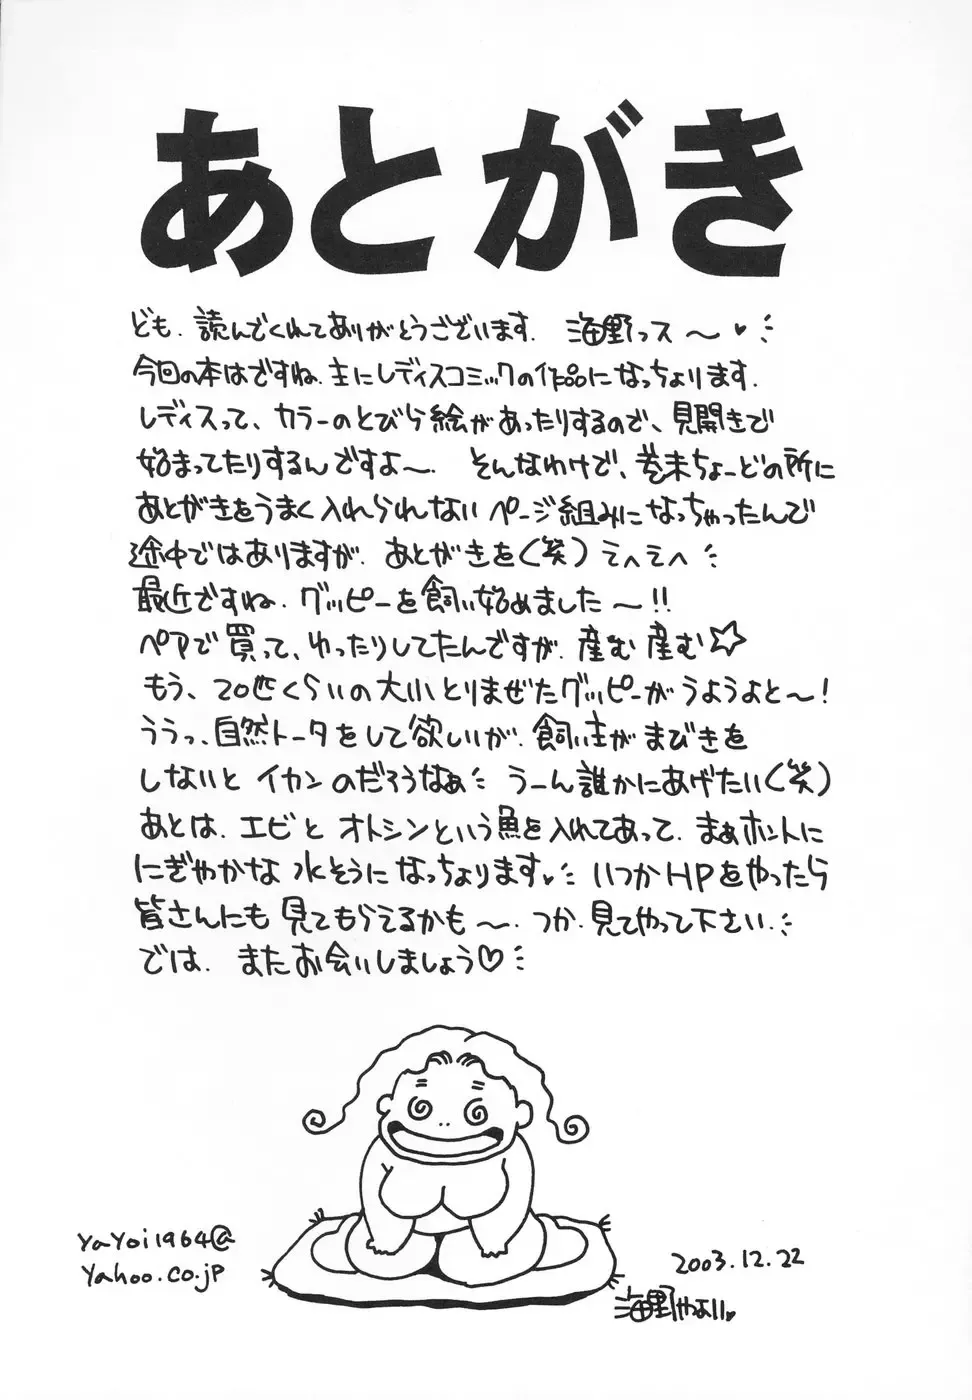 あとがき
ども、読んでくれてありがとうございます。海野っス〜♥
今回の本はですね、主にレディスコミックの作品になっちょります。
レディスって、カラーのとびら絵があったりするので、見開きで
始まってたりするんですよ〜。そんなわけで、巻末ちょーどの所に
あとがきをうまく入れられないページ組みになっちゃったんで
途中ではありますが、あとがきを(笑)えへえへ
最近ですね、グッピーを飼い始めました〜!!
ペアで買って、ゆったりしてたんですが、産む産む☆
もう、20匹くらいの大小とりまぜたグッピーがうようよと〜!
ううっ、自然トータをして欲しいが、飼い主がまびきを
しないとイカンのだろうなぁ うーん誰かにあげたい(笑)
あとは、エビとオトシンという魚を入れてあって、まぁホントに
にぎやかな水そうになっちょります♥ いつかHPをやったら
皆さんにも見てもらえるかも〜。つか、見てやって下さい。
では、またお会いしましょう♡
YaYoi1964@
Yahoo.co.jp
2003.12.22
海野やよい♥